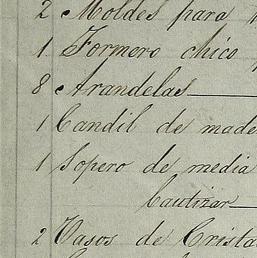 2 Moldes para
1 Formero chico
8 Arandelas
1 Candil de made
1 Sopero de media
Cautizar
2 Vasos de Crista